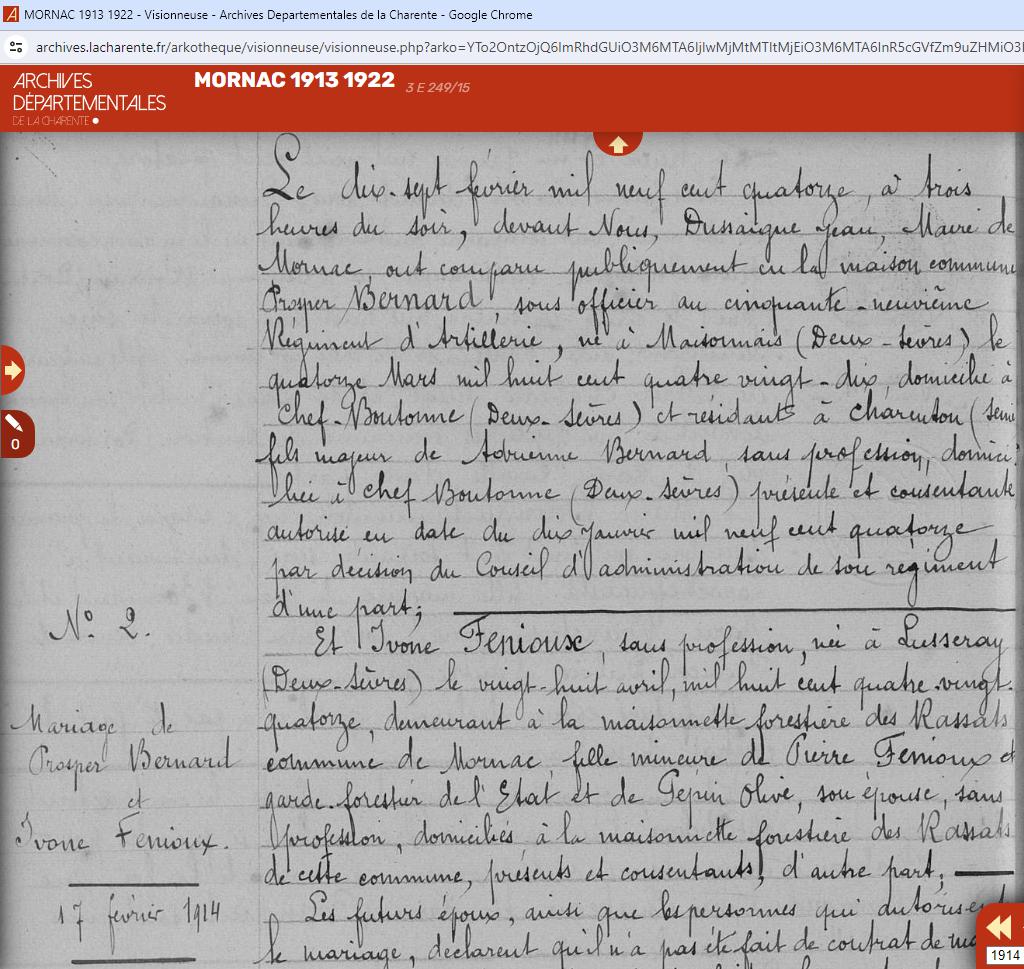 MORNAC 1913 1922 - Visionneuse - Archives Departementales de la Charente - Google Chrome
archives.lacharente.fr/arkotheque/visionneuse/visionneuse.php?arko=
ARCHIVES
DÉPARTEMENTALES
DE LA CHARENTE
MORNAC 1913 1922 3 E 249/15
Le dix-sept février mil neuf cent quatorze, à trois
heures du soir, devant Nous, Dussaigne Jean, Maire de
Mornac, ont comparu publiquement en la maison commune
Prosper Bernard, sous officier au cinquante-neuvième
Régiment d'Artillerie, né à Maisonnais (Deux-Sèvres) le
quatorze Mars mil huit cent quatre vingt-dix, domicilié à
Chef-Boutonne (Deux-Sèvres) et résidant à Charenton (Seine
fils majeur de Adrienne Bernard, sans profession, domici
liée à Chef Boutonne (Deux-Sèvres) présente et consentante
autorisé en date du dix Janvier mil neuf cent quatorze
par décision du Conseil d'administration de son régiment
d'une part;
Et Ivone Fenioux, sans profession, née à Lusseray
(Deux-Sèvres) le vingt-huit avril, mil huit cent quatre-vingt-
quatorze, demeurant à la maisonnette forestière des Rassats
commune de Mornac, fille mineure de Pierre Fenioux et
garde-forestier de l'Etat et de Gépin Olive, son épouse, sans
profession, domiciliés à la maisonnette forestière des Rassats
de cette commune, présents et consentants, d'autre part,
Les futurs époux, ainsi que les personnes qui autorisent
le mariage, déclarent qu'il n'a pas été fait de contrat de
0
N° 2.
Mariage de
Prosper Bernard
et
Ivone Fenioux.
17 février 1914
1914